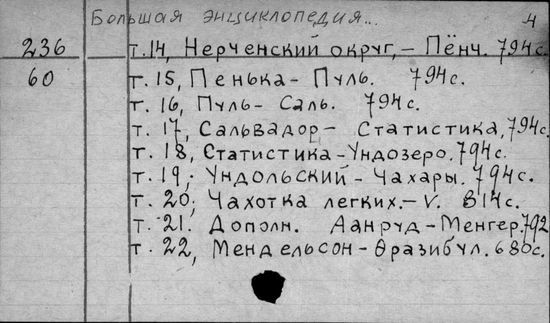 Большая энциклопедия... 4
236 т.14, Нерченский округ, – Пёнч. 794с.
60 т. 15, Пенька – Пуль. 794с.
т. 16, Пуль – Саль. 794с.
т. 17, Сальвадор – Статистика, 794с.
т. 18, Статистика – Ундозеро. 794с.
т. 19, Ундольский – Чахары. 794с.
т. 20; Чахотка легких. – V. 814с.
т. 21. Дополн. Аанруд – Менгер. 792
т. 22, Мендельсон – Фразибул. 680с.